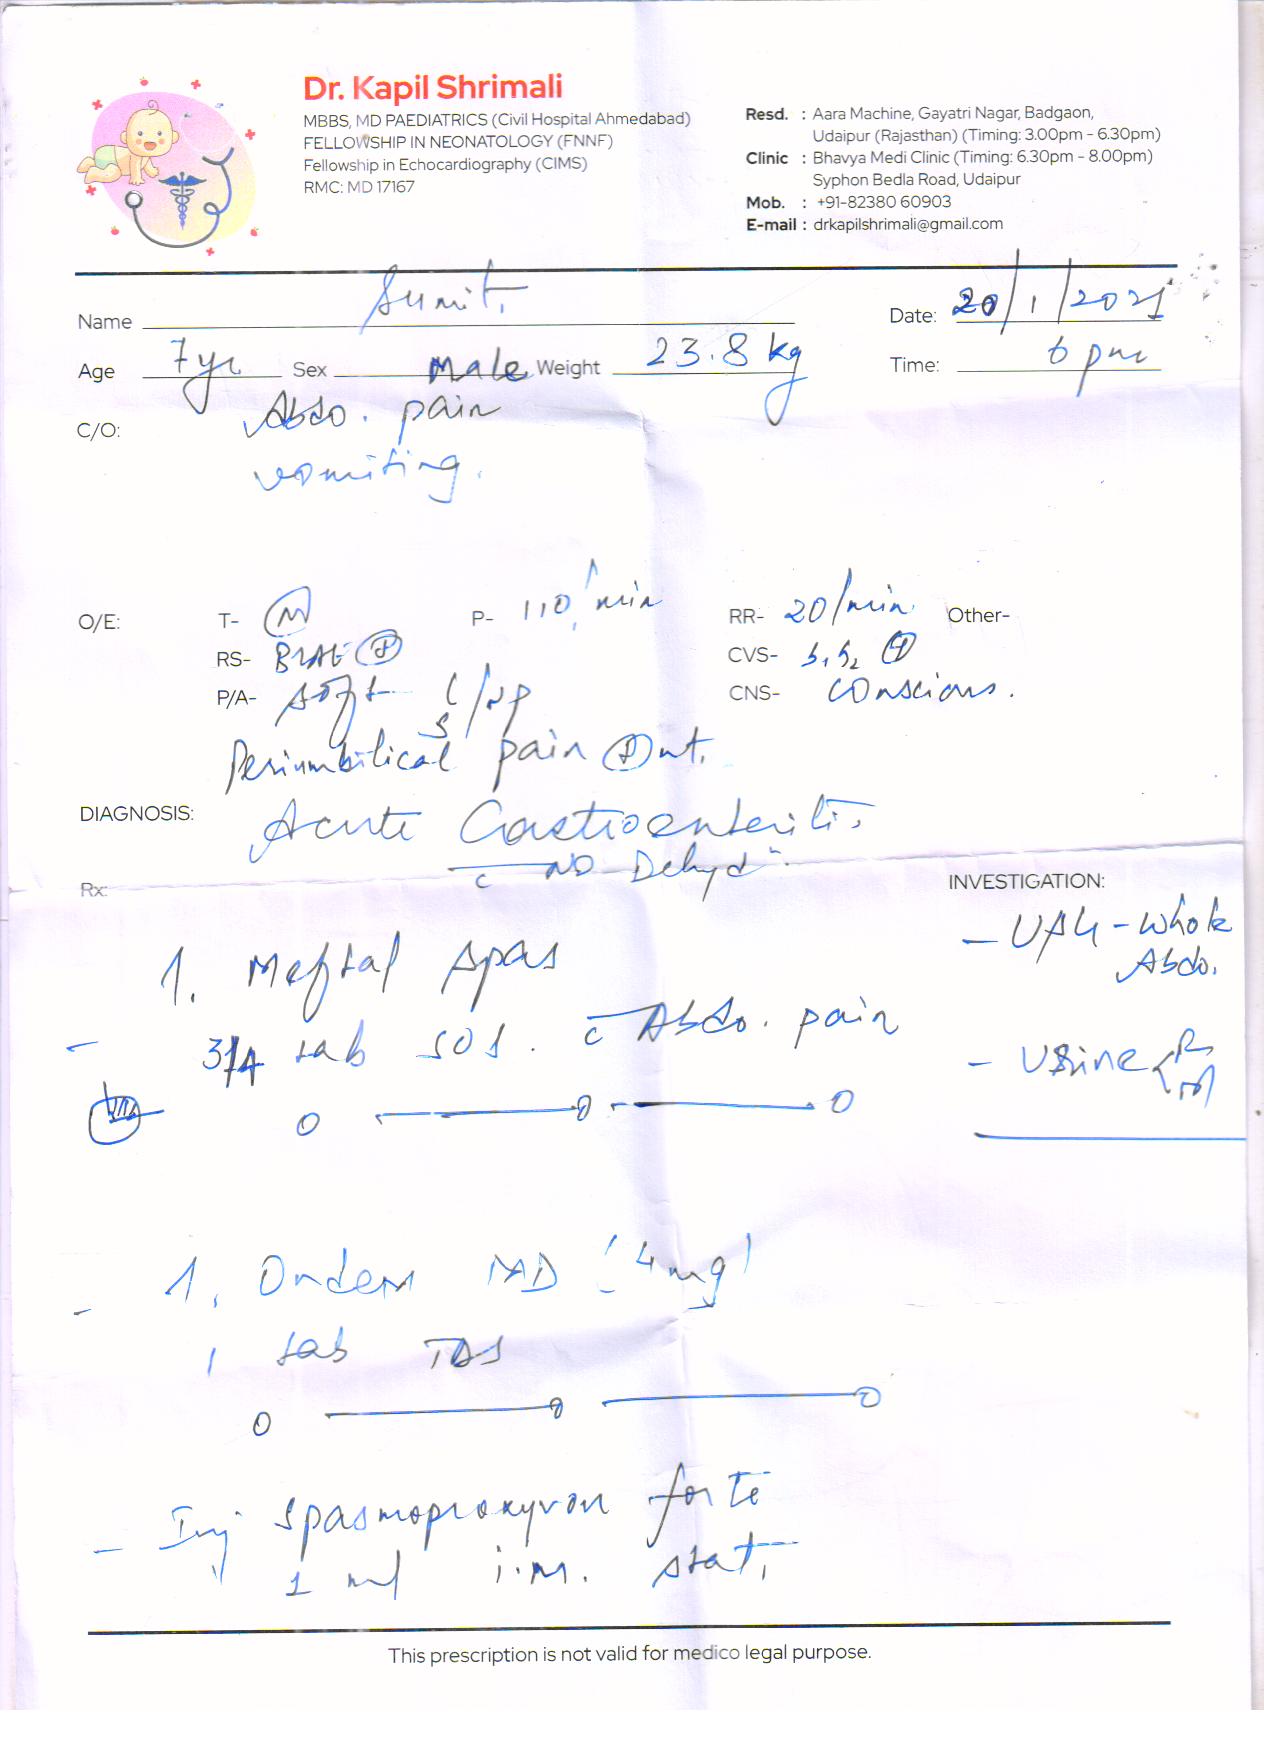 Dr. Kapil Shrimali
MBBS, MD PAEDIATRICS (Civil Hospital Ahmedabad)
FELLOWSHIP IN NEONATOLOGY (FNNF)
Fellowship in Echocardiography (CIMS)
RMC: MD 17167
Resd. : Aara Machine, Gayatri Nagar, Badgaon,
Udaipur (Rajasthan) (Timing: 3.00pm - 6.30pm)
Clinic : Bhavya Medi Clinic (Timing: 6.30pm - 8.00pm)
Syphon Bedla Road, Udaipur
Mob. : +91-82380 60903
E-mail : drkapilshrimali@gmail.com
Name Sumit. Date: 20/1/2021
Age 7yr Sex Male Weight 23.8 kg Time: 6 pm
C/O: Abdo. pain
vomiting.
O/E: T- (N) P- 110/min RR- 20/min. Other-
RS- BLAE (+) CVS- S1S2 (+)
P/A- soft CNS- conscious.
Periumbilical pain (+)nt.
DIAGNOSIS: Acute Gastroenteritis
c No Dehydn.
Rx: INVESTIGATION:
- USG - Whole
Abdo.
1. Meftal Spas
- 3/4 tab SOS. c Abdo. pain
- Urine R
M
0 0 0
- 1. Ondem MD (4mg)
1 tab TDS
0 0 0
- Inj Spasmoproxyvon forte
1 ml i.m. stat.
This prescription is not valid for medico legal purpose.